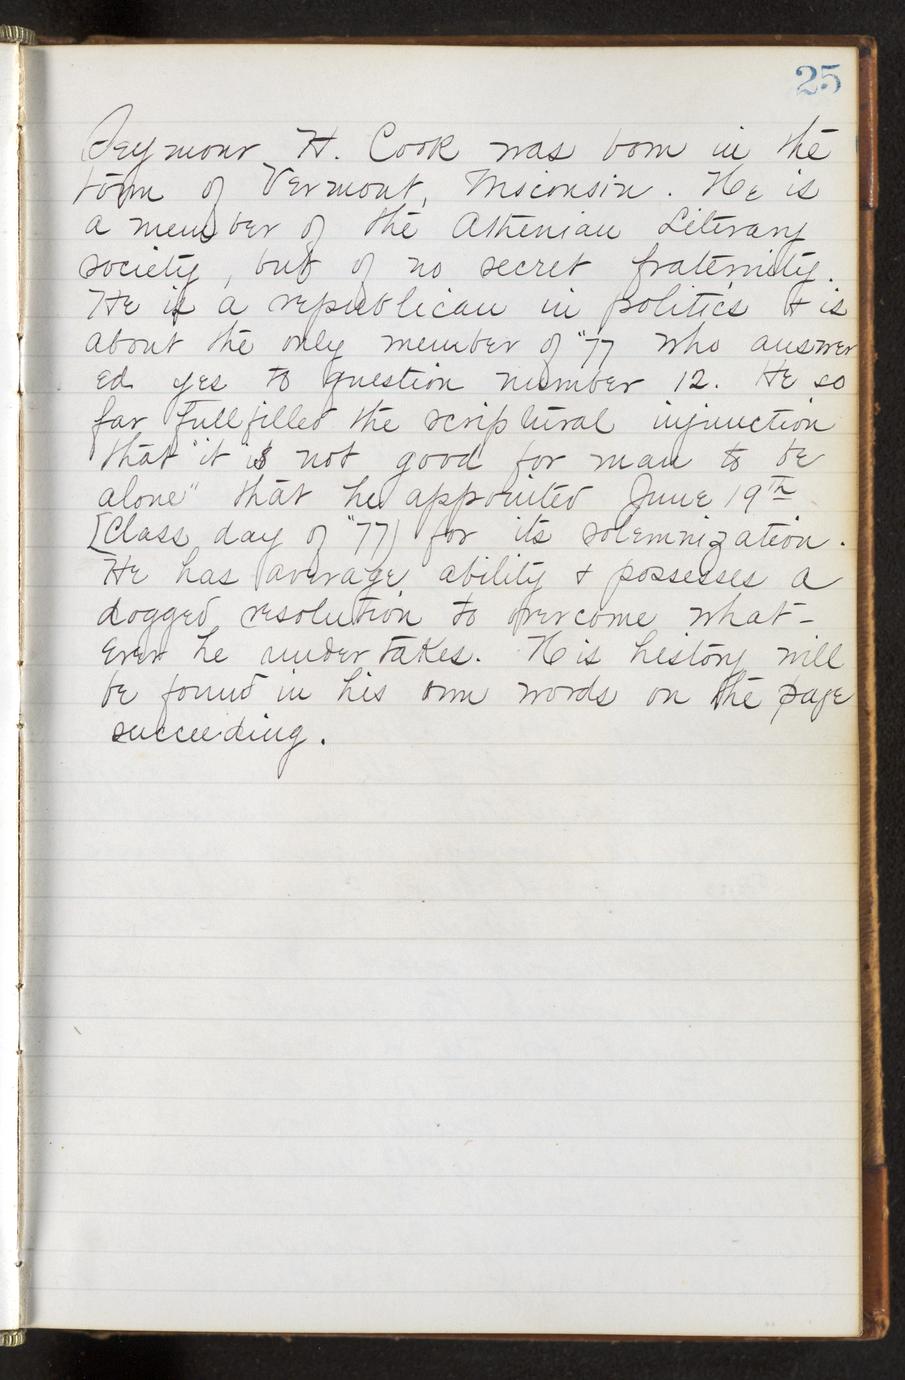 25
Seymour H. Cook was born in the
town of Vermont, Wisconsin. He is
a member of the Athenian Literary
society, but of no secret fraternity.
He is a republican in politics & is
about the only member of "77 who answer
ed yes to question number 12. He so
far fullfilled the scriptural injunction
that "it is not good for man to be
alone" that he appointed June 19th
[Class day of "77) for its solemnization.
He has average ability & possesses a
dogged resolution to overcome what-
ever he undertakes. His history will
be found in his own words on the page
succeeding.